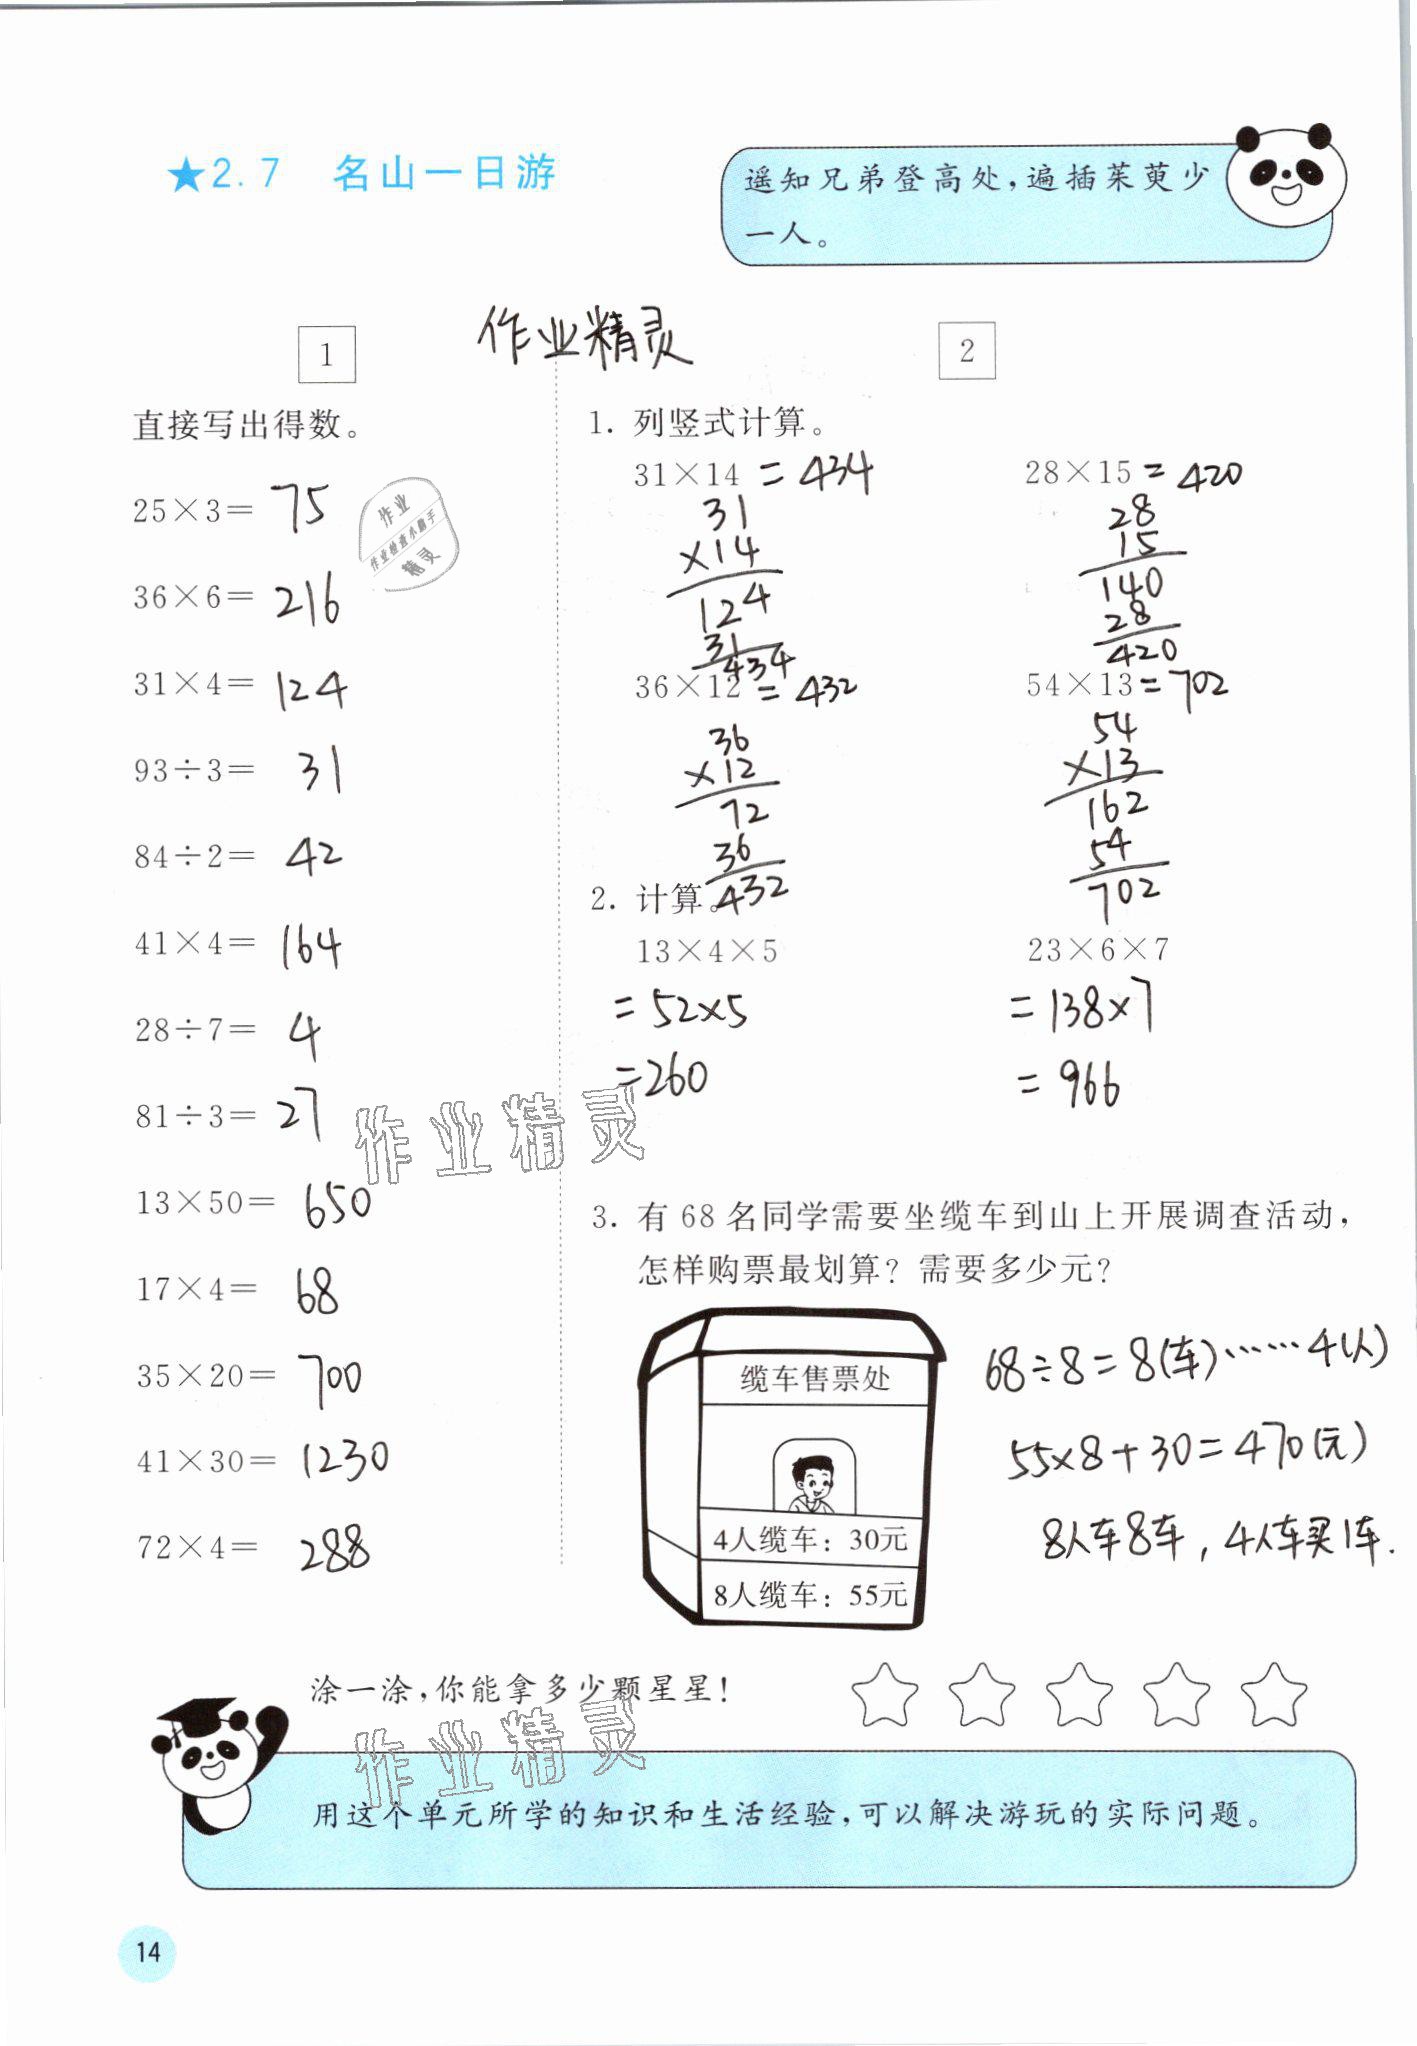 ★2.7 名山一日游
遥知兄弟登高处，遍插茱萸少
一人。
作业精灵
1
直接写出得数。
25×3= 75
36×6= 216
31×4= 124
93÷3= 31
84÷2= 42
41×4= 164
28÷7= 4
81÷3= 27
13×50= 650
17×4= 68
35×20= 700
41×30= 1230
72×4= 288
作业
作业检查小助手
精灵
2
1. 列竖式计算。
31×14 = 434
31
×14
124
31
434
28×15 = 420
28
15
140
28
420
36×12 = 432
36
×12
72
36
432
54×13 = 702
54
×13
162
54
702
2. 计算。
13×4×5
=52×5
=260
23×6×7
=138×7
=966
作业精灵
3. 有 68 名同学需要坐缆车到山上开展调查活动，
怎样购票最划算？需要多少元？
缆车售票处
4人缆车：30元
8人缆车：55元
68÷8=8(车)……4(人)
55×8+30=470(元)
8人车8车，4人车买1车.
涂一涂，你能拿多少颗星星！
作业精灵
用这个单元所学的知识和生活经验，可以解决游玩的实际问题。
14